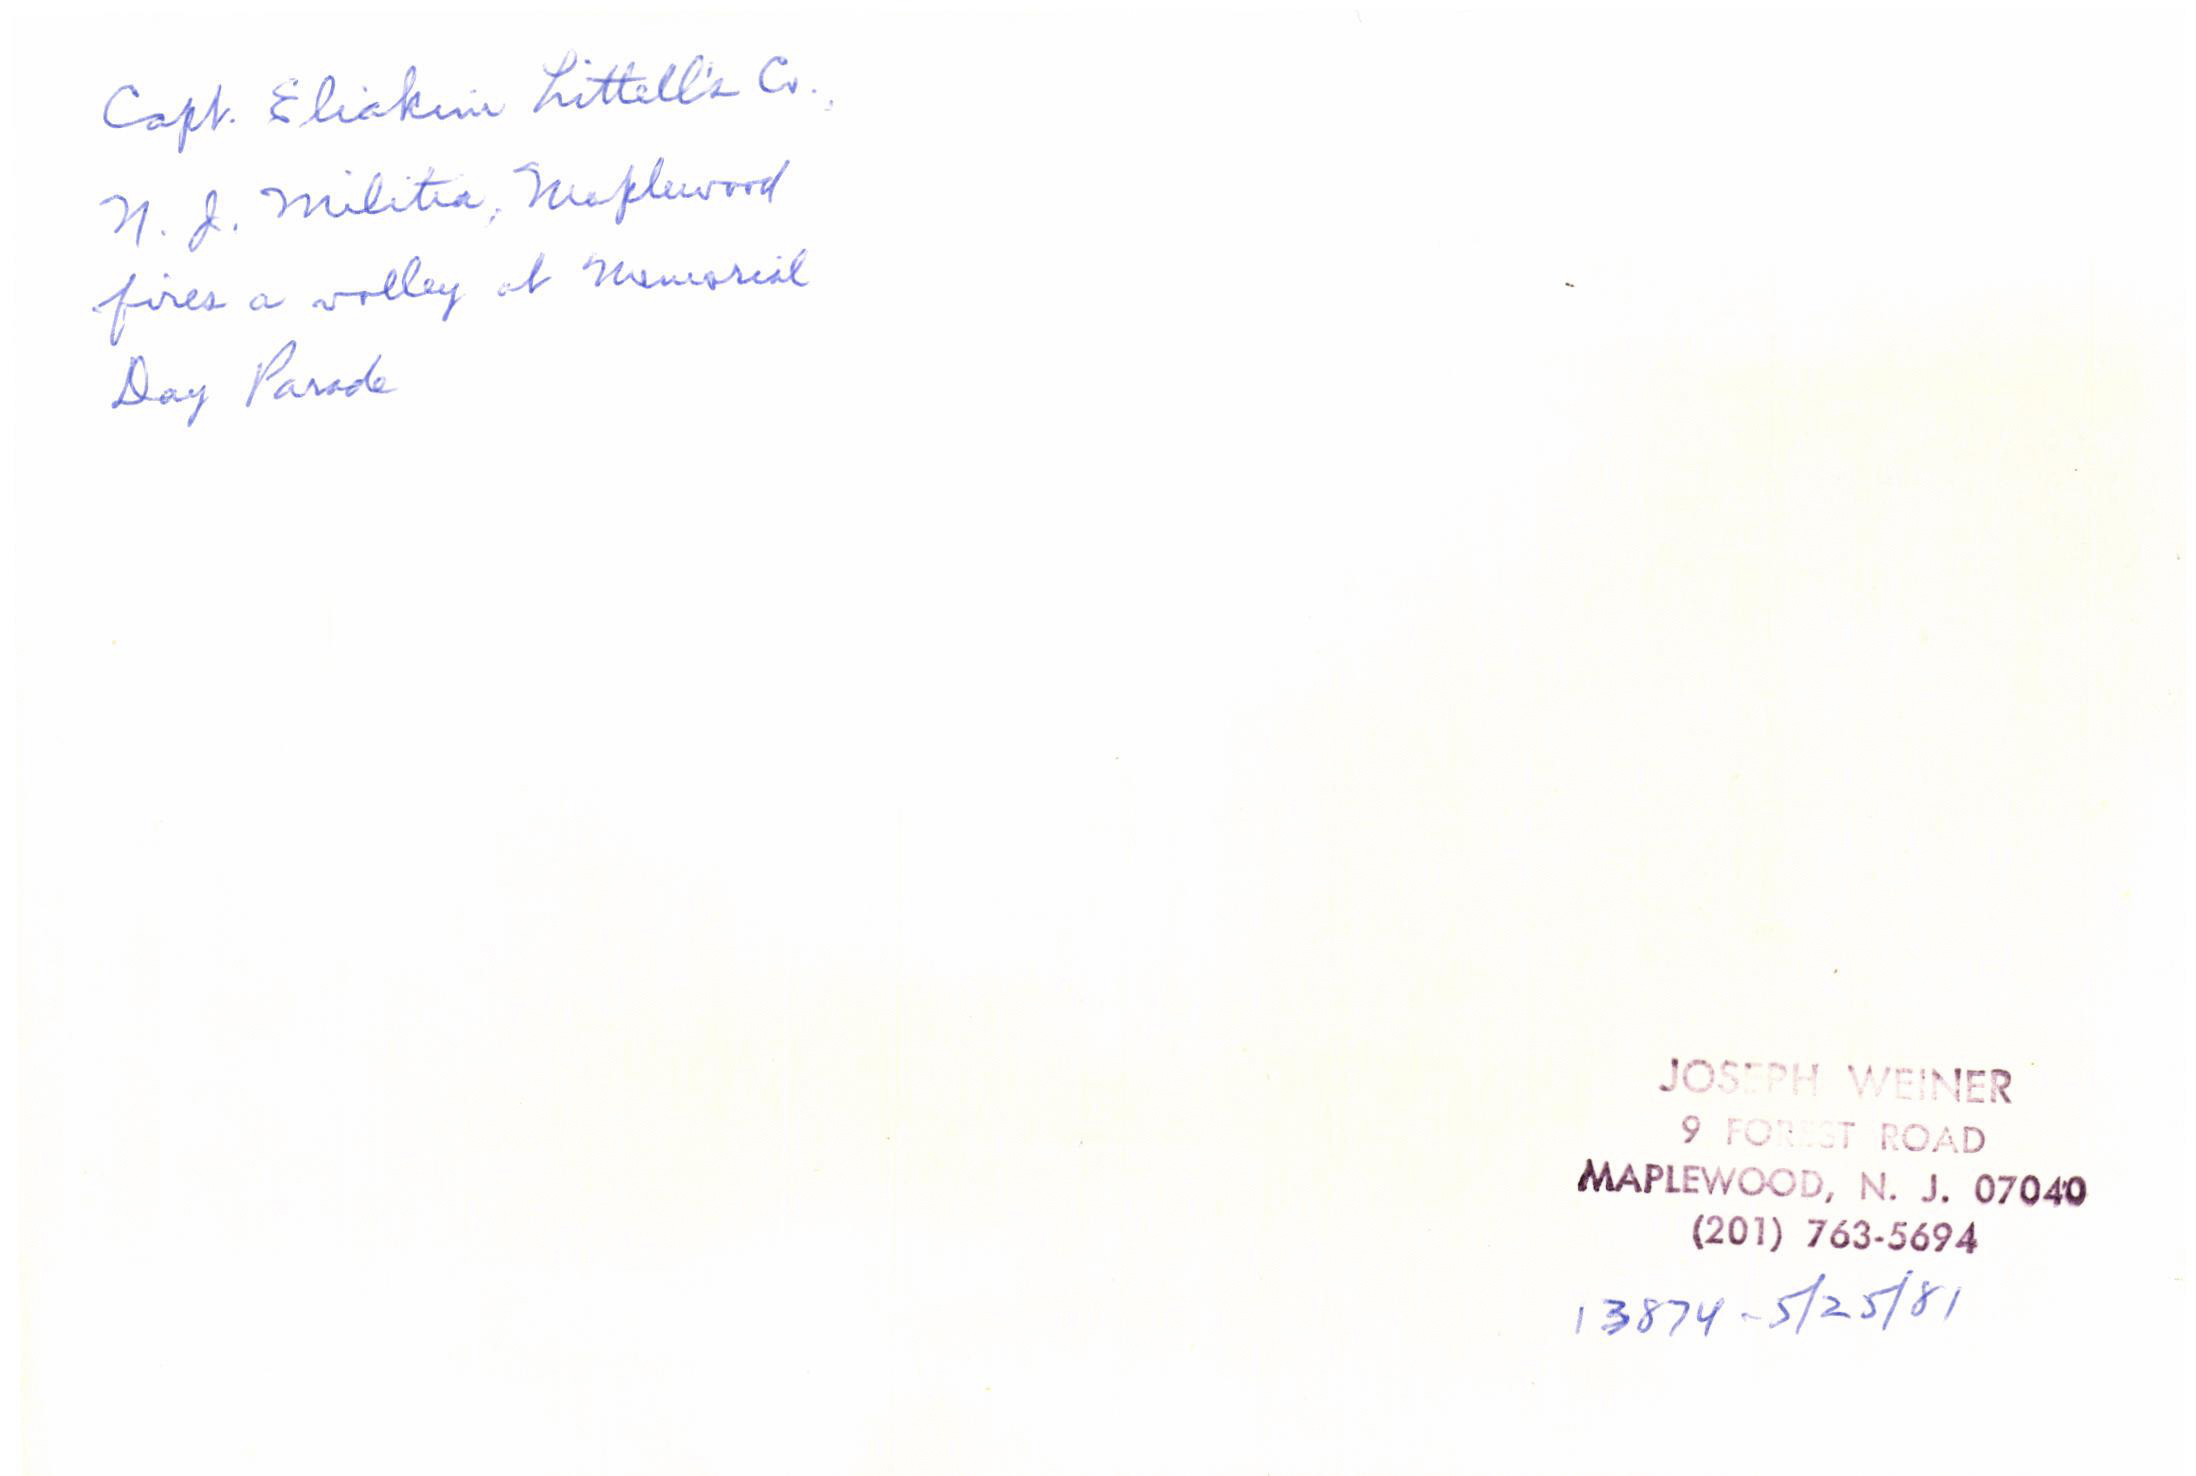 Capt. Eliakim Littell's Co.,
N. J. Militia, Maplewood
fires a volley at Memorial
Day Parade
JOSEPH WEINER
9 FOREST ROAD
MAPLEWOOD, N. J. 07040
(201) 763-5694
13874 - 5/25/81